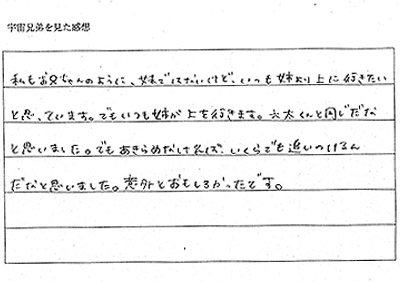 宇宙兄弟を見た感想
私もお兄ちゃんのように、妹ではないけど、いつも姉より上に行きたい
と思っています。でもいつも姉が上を行きます。六太くんと同じだな
と思いました。でもあきらめなければ、いくらでも追いつけるん
だなと思いました。意外とおもしろかったです。